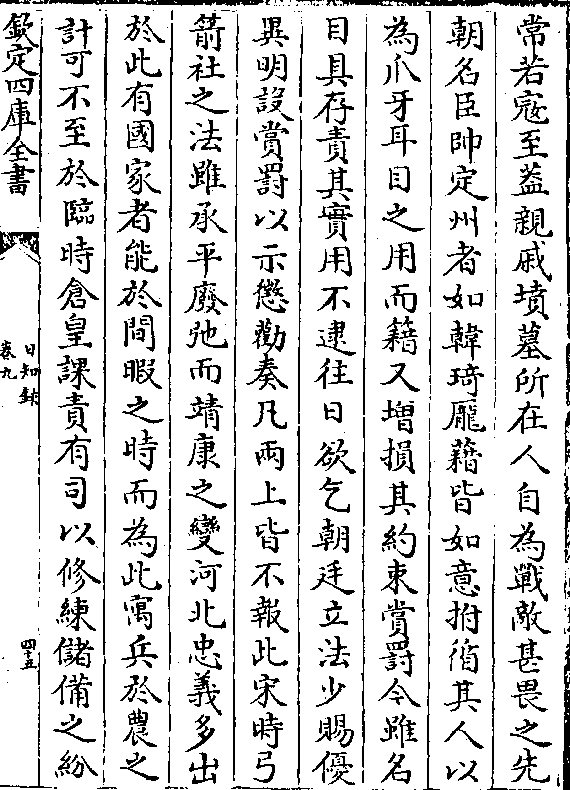 常若寇至葢親戚墳墓所在人自為戰敵甚畏之先
朝名臣帥定州者如韓琦龎籍皆如意拊循其人以
為爪牙耳目之用而籍又増損其約束賞罰今雖名
目具存責其實用不逮往日欲乞朝廷立法少賜優
異明設賞罰以示懲勸奏凡兩上皆不報此宋時弓
箭社之法雖承平廢弛而靖康之變河北忠義多出
於此有國家者能於間暇之時而為此寓兵於農之
計可不至於臨時倉皇課責有司以修練儲備之紛
欽定四庫全書
日知録
卷九
四十五